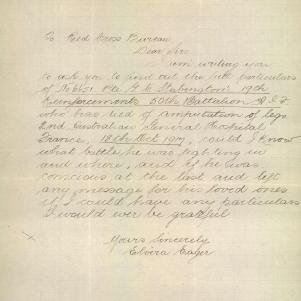 To Red Cross Bureau
Dear Sirs
am writing you
to ask you to find out the full particulars
of No 6651 Pte G. H. Stabington 19th
Reinforcements 50th Battalion A.I.F
who has died of amputation of legs
2nd Australian General Hospital
France, 18th Oct 1917, could I know
what battle he was fighting in
and where, and if he was
conscious at the last and left
any message for his loved ones
if I could have any particulars
I would ever be grateful
Yours Sincerely
Elvira Eager